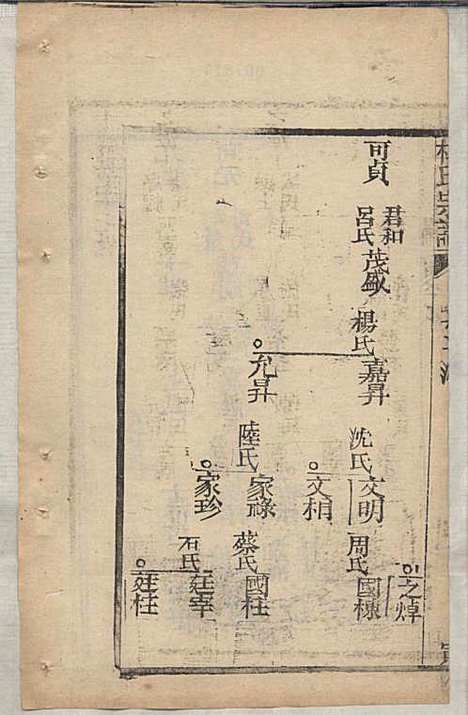 氏宗譜
可貞
君和
呂氏
茂盛
楊氏
嘉昇
允昇
沈氏
陸氏
文明
文相
家祿
家珍
周氏
蔡氏
石氏
之焯
國棟
國柱
廷幸
廷柱